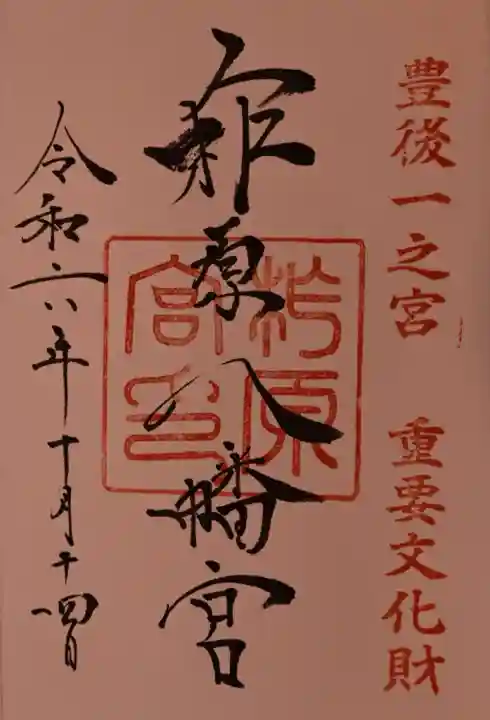 豊後一之宮 重要文化財
柞原八幡宮
柞原宮印
令和六年十月十四日